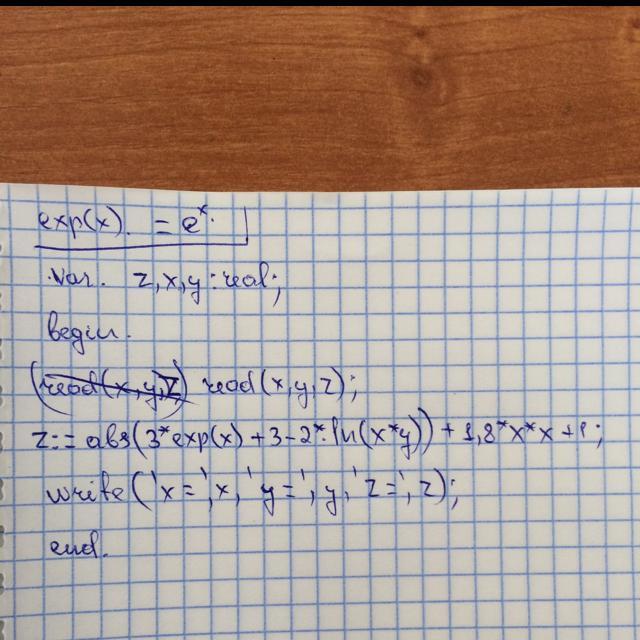 exp(x). = eˣ.
var. z,x,y:real;
begin.
(read(x,y,z) read(x,y,z);
z:= abs(3*exp(x)+3-2*ln(x*y))+1,8*x*x+1;
write('x=',x,'y=',y,'z=',z);
end.